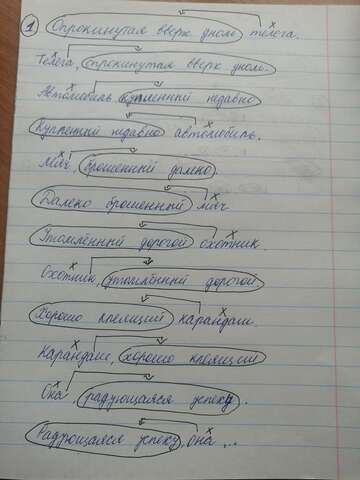 1 Опрокинутая вверх дном телега.
Телега, опрокинутая вверх дном.
Автомобиль купленный недавно
Купленный недавно автомобиль.
Мяч, брошенный далеко.
Далеко брошенный мяч
Утомлённый дорогой охотник.
Охотник, утомлённый дорогой
Хорошо клеящий карандаш.
Карандаш, хорошо клеящий
Она, радующаяся успеху.
Радующаяся успеху, она ...